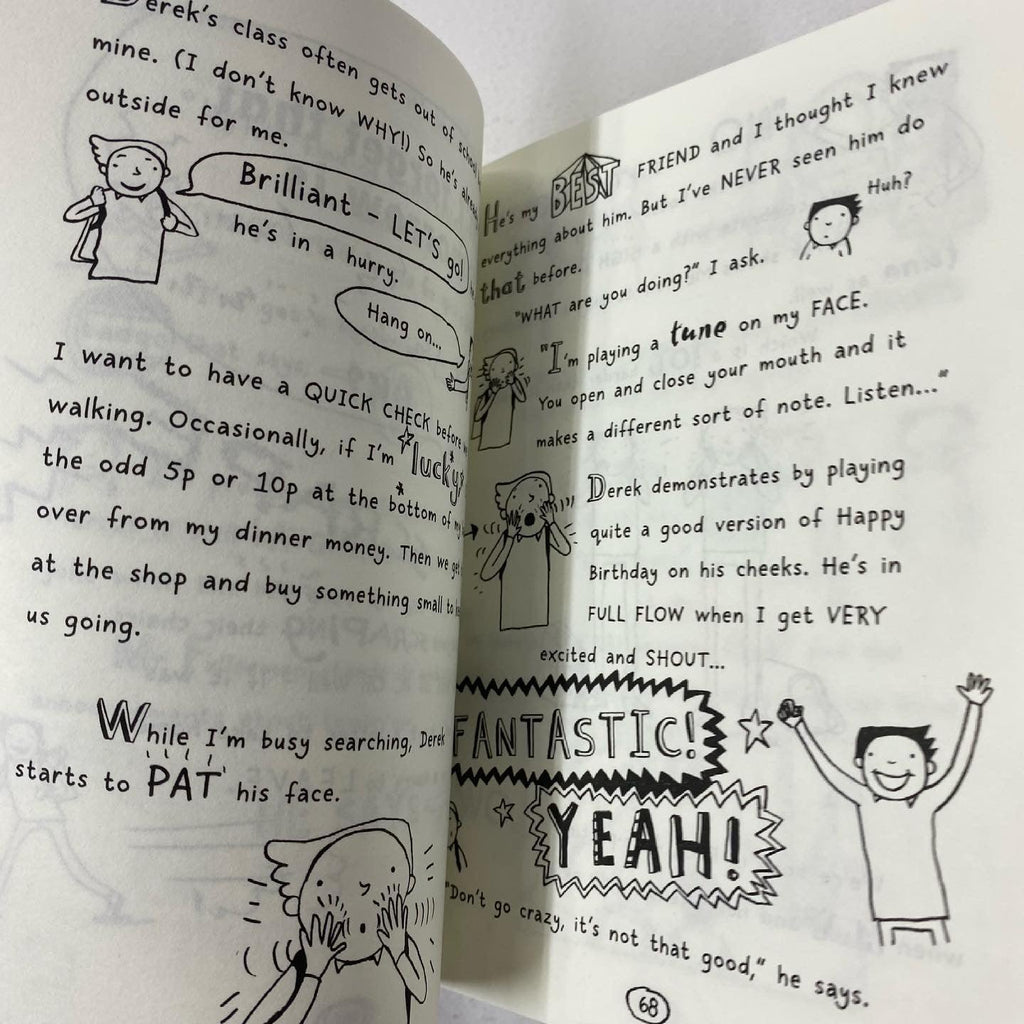 Derek's class often gets out of school
mine. (I don't know WHY!) So he's
outside for me.
Brilliant - LET'S go!
he's in a hurry.
Hang on...
I want to have a QUICK CHECK before
walking. Occasionally, if I'm lucky,
the odd 5p or 10p at the bottom of my
over from my dinner money. Then we
at the shop and buy something small to
us going.
While I'm busy searching, Derek
starts to PAT his face.
He's my BEST FRIEND and I thought I knew
everything about him. But I've NEVER seen him do
that before.
Huh?
"WHAT are you doing?" I ask.
"I'm playing a tune on my FACE.
You open and close your mouth and it
makes a different sort of note. Listen..."
Derek demonstrates by playing
quite a good version of Happy
Birthday on his cheeks. He's in
FULL FLOW when I get VERY
excited and SHOUT...
FANTASTIC!
YEAH!
"Don't go crazy, it's not that good," he says.
68